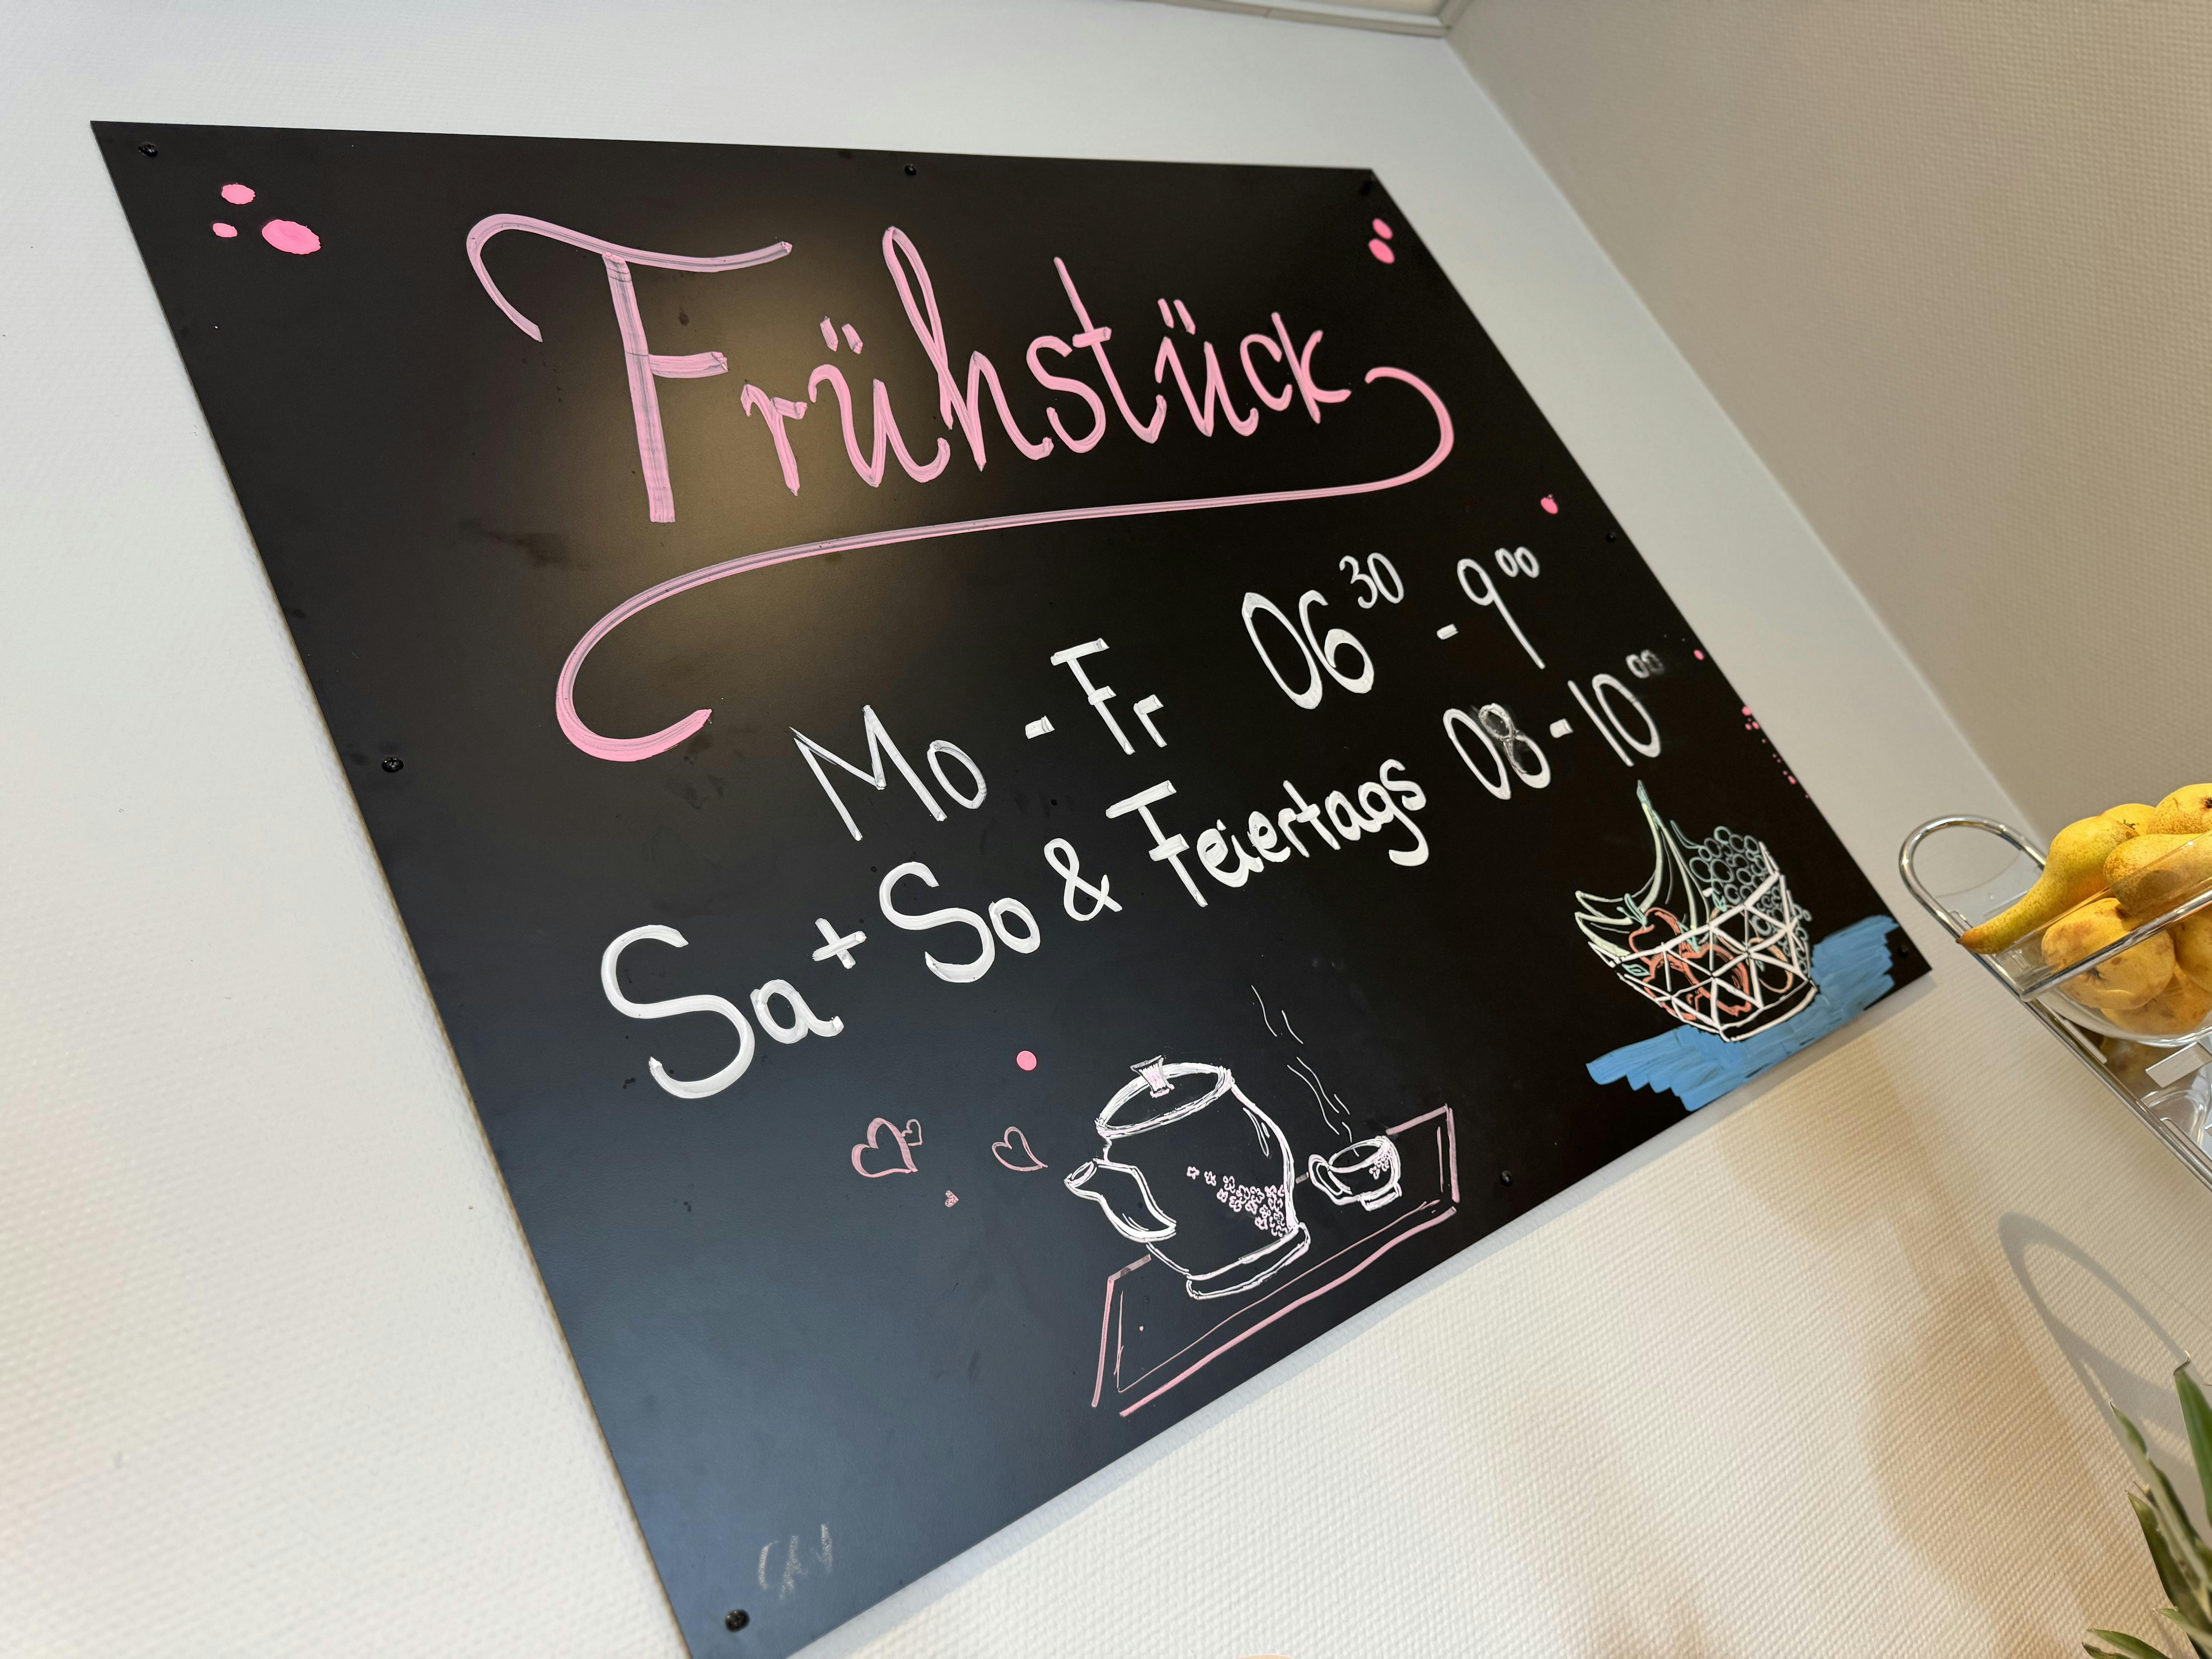 Frühstück
Mo - Fr 06³⁰ - 9⁰⁰
Sa + So & Feiertags 08 - 10⁰⁰